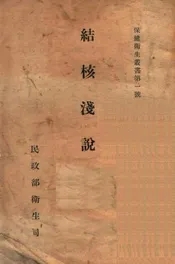 保健衛生叢書第一號
結核淺說
民政部衛生司